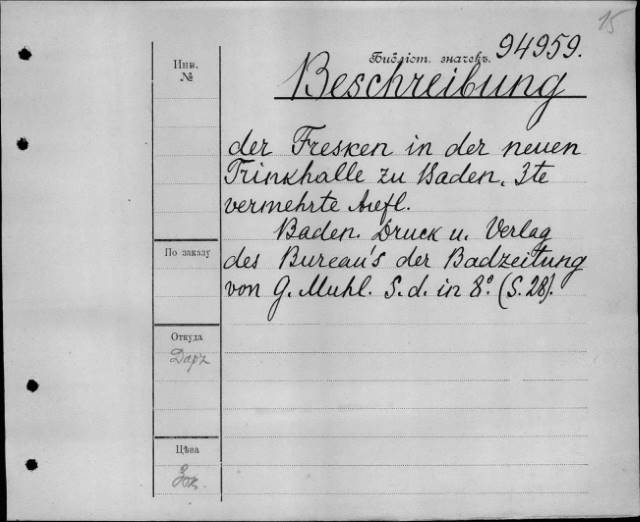 15
94959.
Библіот. значекъ.
Инв.
№
Beschreibung
der Fresken in der neuen
Trinkhalle zu Baden, 3te
vermehrte Aufl.
Baden. Druck u. Verlag
По заказу
des Bureau's der Badzeitung
von G. Muhl. S. d. in 8º. (S. 28).
Откуда
Даръ
Цѣна